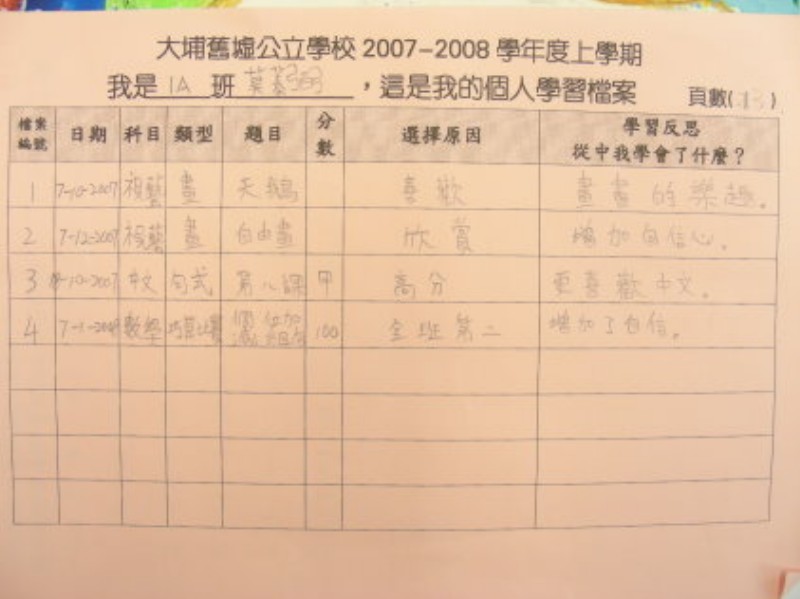 大埔舊墟公立學校 2007-2008 學年度上學期
我是 1A 班 莫 ，這是我的個人學習檔案 頁數( )
檔案編號 日期 科目 類型 題目 分數 選擇原因 學習反思 從中我學會了什麼？
1 7-10-2007 視藝 畫 天鵝 喜歡 畫畫的樂趣。
2 7-12-2007 視藝 畫 自由畫 欣賞 增加自信心。
3 8-10-2007 中文 句式 第八課 甲 高分 更喜歡中文。
4 7-1-2008 數學 100 全班第二 增加了自信。